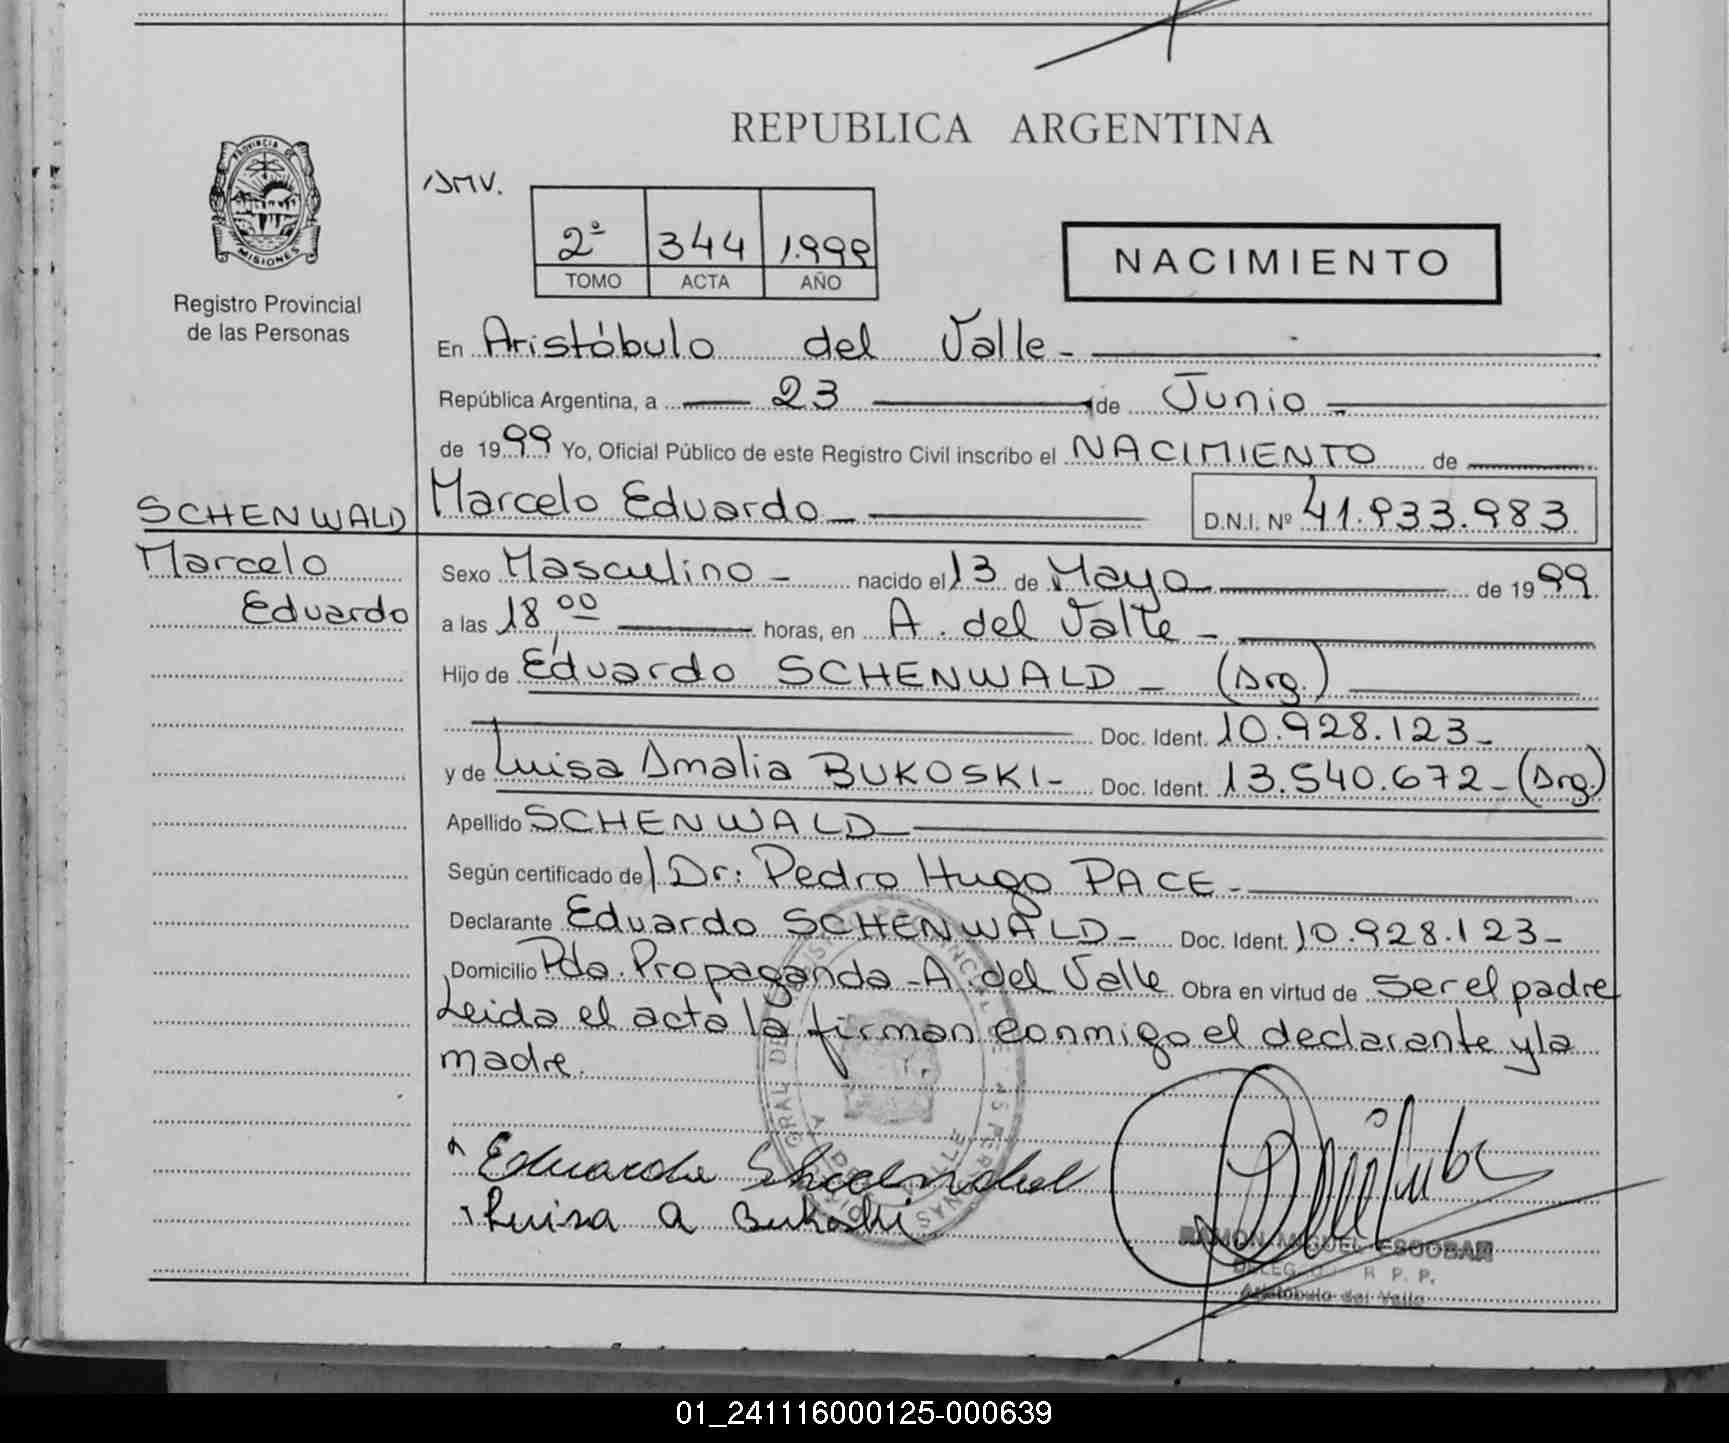 REPUBLICA ARGENTINA
PROVINCIA DE
MISIONES
Registro Provincial
de las Personas
2º 344 1.999
TOMO ACTA AÑO
NACIMIENTO
En Aristóbulo del Valle -
República Argentina, a 23 de Junio -
de 1999 Yo, Oficial Público de este Registro Civil inscribo el NACIMIENTO de
SCHENWALD
Marcelo
Eduardo
Marcelo Eduardo - D.N.I. Nº 41.933.983
Sexo Masculino - nacido el 13 de Mayo de 1999
a las 18,00 horas, en A. del Valle -
Hijo de Eduardo SCHENWALD - (Arg.)
Doc. Ident. 10.928.123-
y de Luisa Amalia BUKOSKI- Doc. Ident. 13.540.672-(Arg.)
Apellido SCHENWALD
Según certificado de Dr: Pedro Hugo PACE-
Declarante Eduardo SCHENWALD- Doc. Ident. 10.928.123-
Domicilio Pdo. Propaganda - A. del Valle Obra en virtud de Ser el padre
Leida el acta la firman conmigo el declarante y la
madre.
Luisa A Bukoski
RAMON MIGUEL ESCOBAR
R. P. P.
Aristóbulo del Valle
01_241116000125-000639